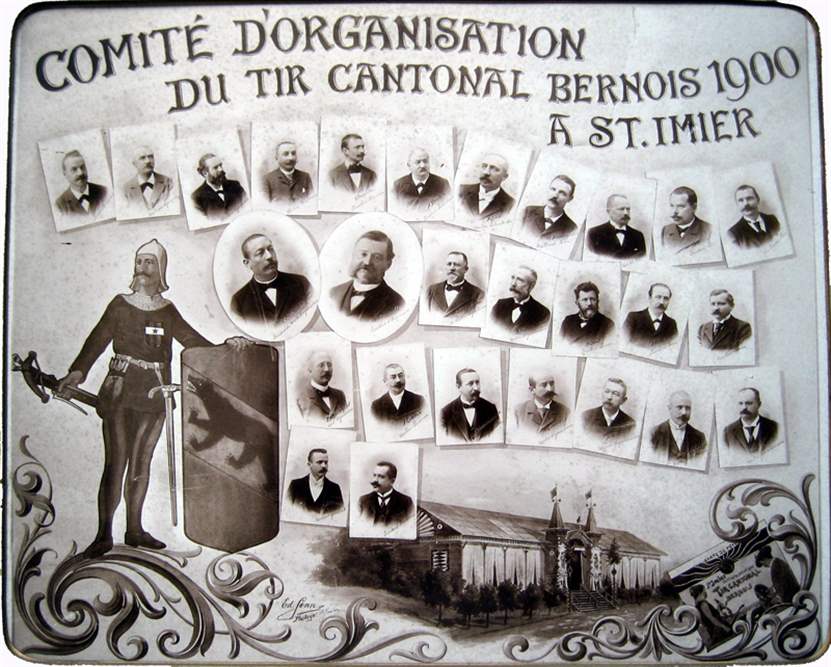 COMITÉ D'ORGANISATION
DU TIR CANTONAL BERNOIS 1900
A ST. IMIER
TIR CANTONAL
BERNOIS